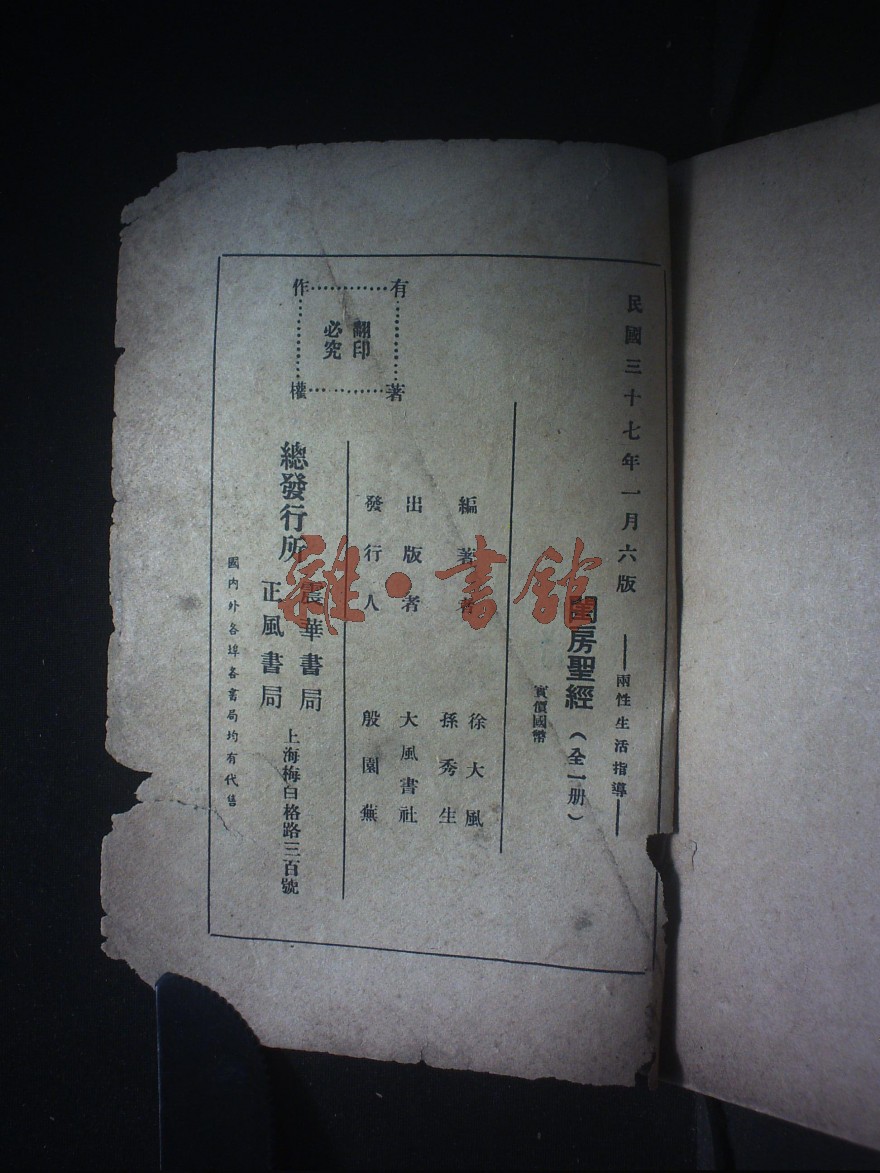 民國三十七年一月六版
——兩性生活指導——
閨房聖經（全一册）
實價國幣
編著者
徐大風
孫秀生
出版者 大風書社
發行人 殷園蕪
有著作權
翻印必究
總發行所
震華書局
正風書局
上海梅白格路三百號
國內外各埠各書局均有代售
雜·書館